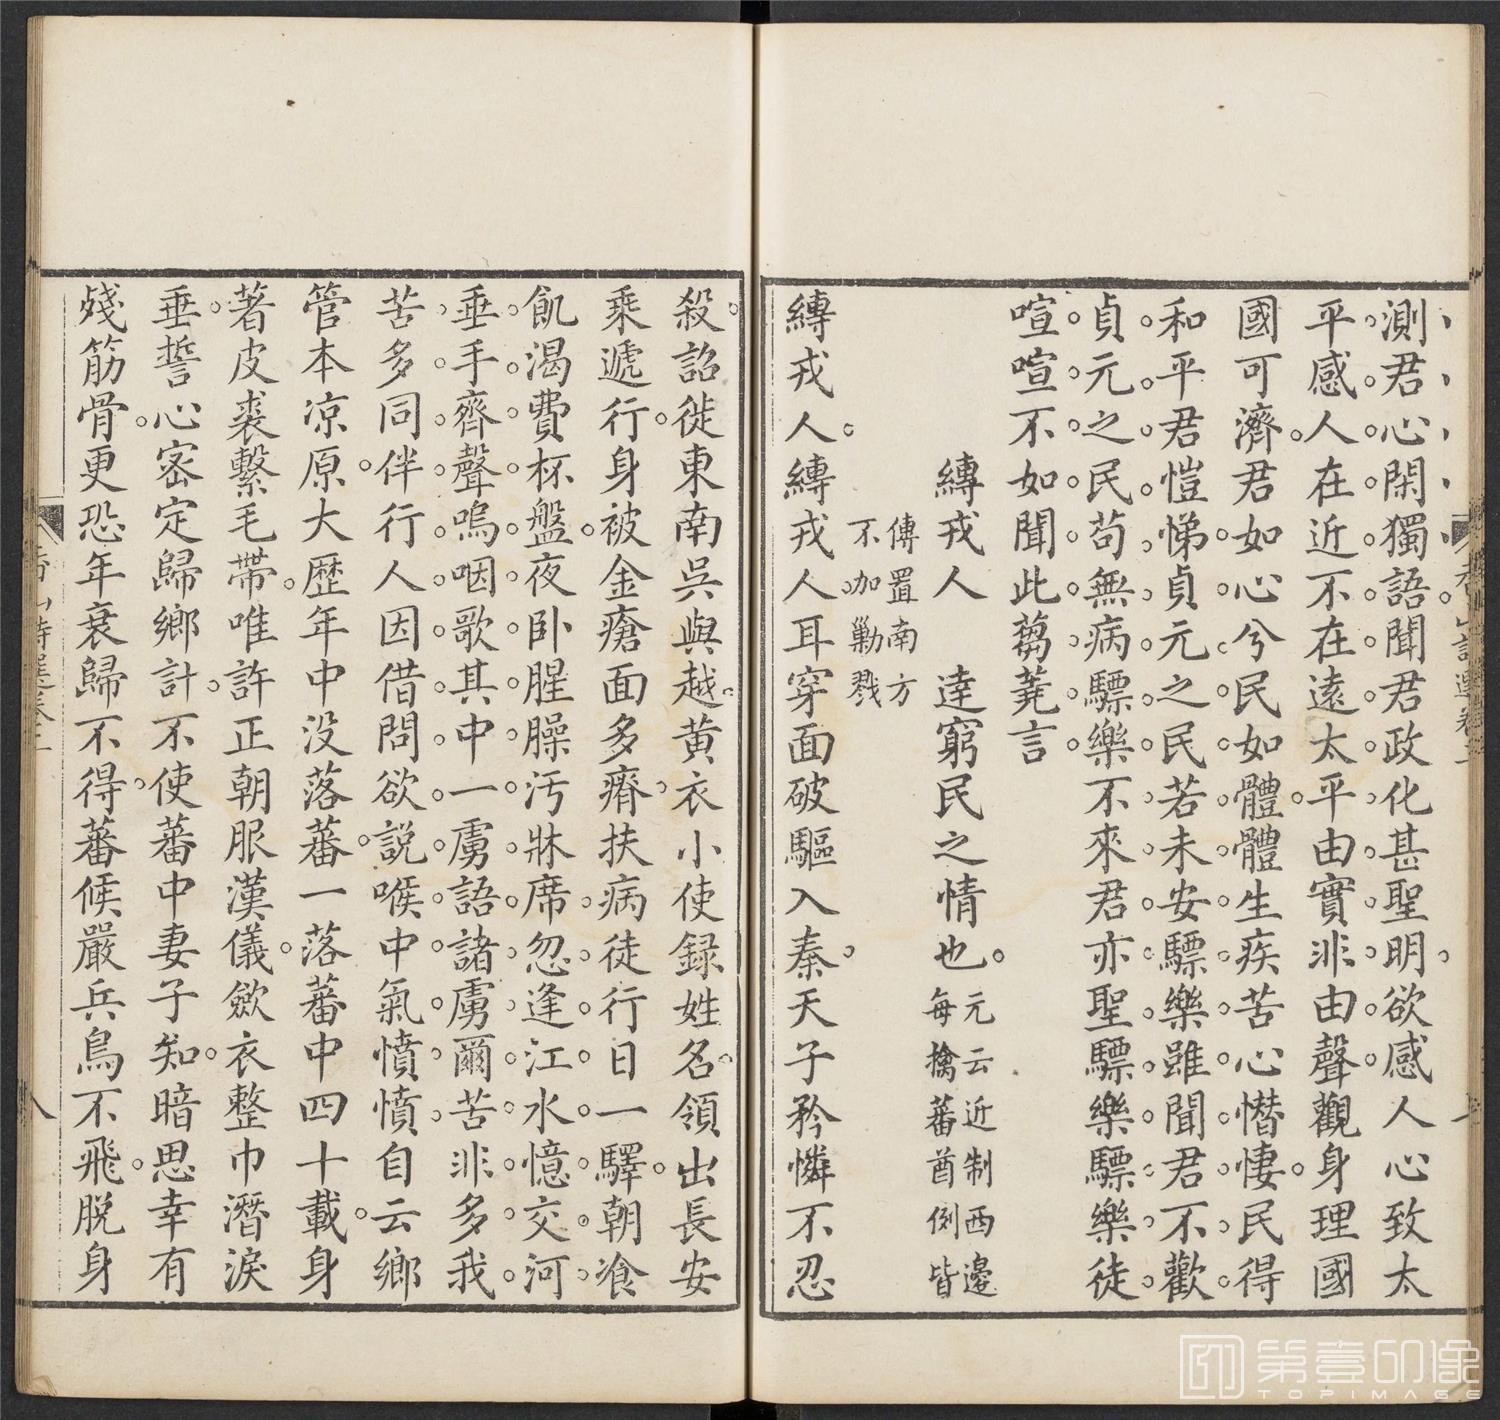 測君心閑獨語聞君政化甚聖明欲感人心致太
平感人在近不在遠太平由實非由聲觀身理國
國可濟君如心兮民如體體生疾苦心憯悽民得
和平君愷悌貞元之民若未安驃樂雖聞君不歡
貞元之民苟無病驃樂不來君亦聖驃樂驃樂徒
喧喧不如聞此蒭蕘言
縛戎人 達窮民之情也
元云近制西邊
每擒蕃酋例皆
傳置南方
不加勦戮
縛戎人縛戎人耳穿面破驅入秦天子矜憐不忍
殺詔徙東南吳與越黃衣小使録姓名領出長安
乘遞行身被金瘡面多瘠扶病徒行日一驛朝飡
飢渴費杯盤夜卧腥臊汚牀席忽逢江水憶交河
垂手齊聲嗚咽歌其中一虜語諸虜爾苦非多我
苦多同伴行人因借問欲説喉中氣憤憤自云鄉
管本凉原大歴年中没落蕃一落蕃中四十載身
著皮裘繫毛帶唯許正朝服漢儀斂衣整巾潛淚
垂誓心密定歸鄉計不使蕃中妻子知暗思幸有
殘筋骨更恐年衰歸不得蕃候嚴兵鳥不飛脱身
香山詩選卷三
八
第壹印像
TOPIMAGE